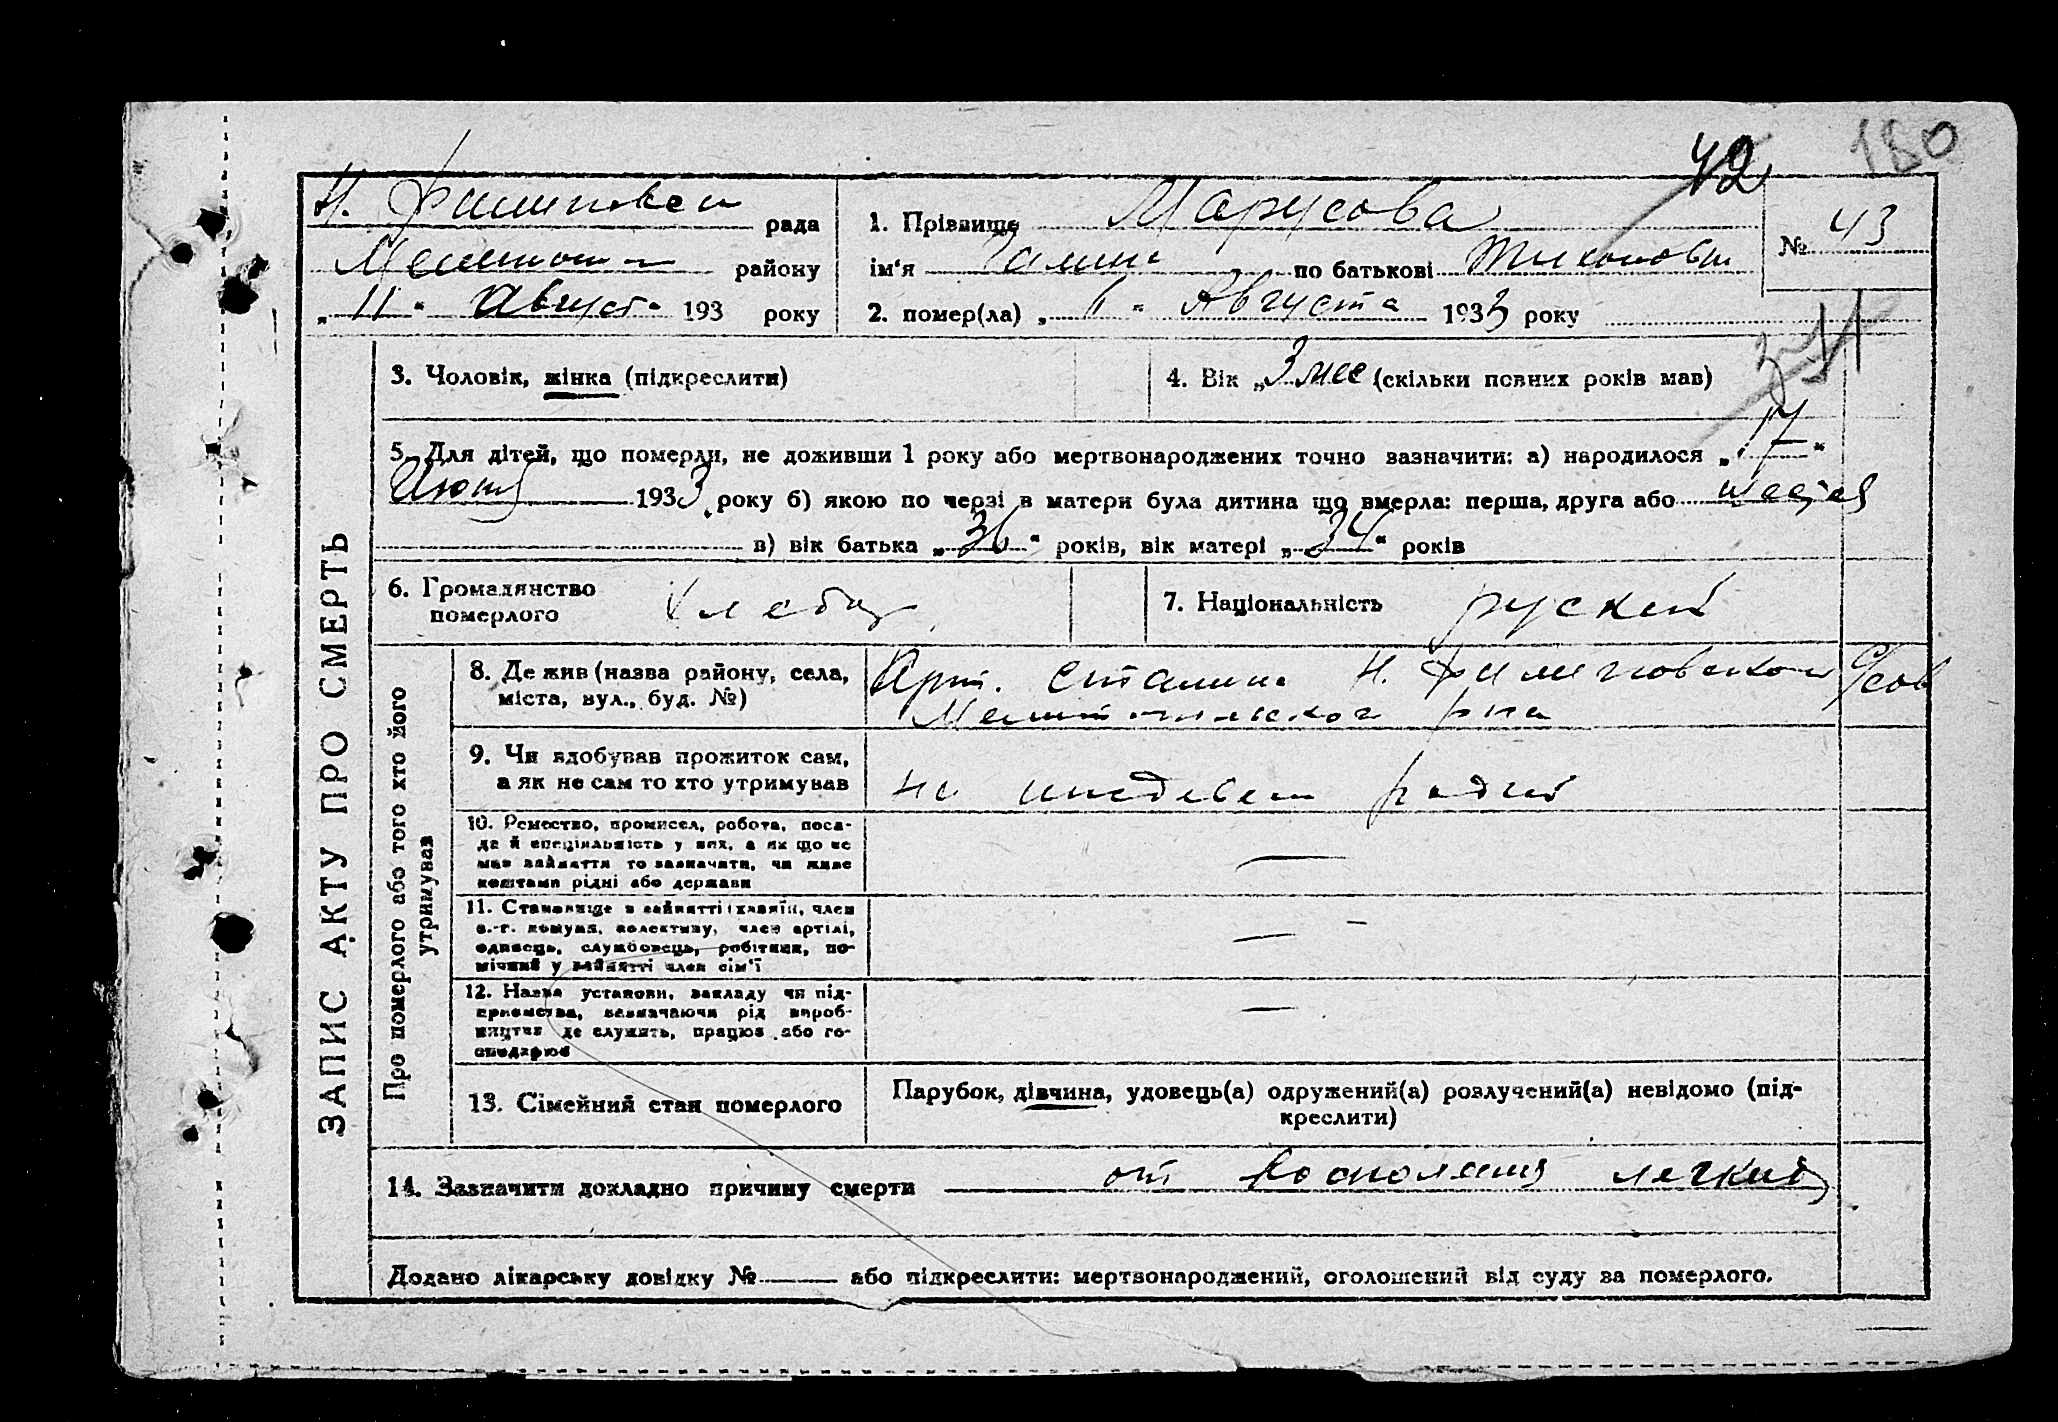 180
42
Н. Филиповск рада
району
„11" Август 193 року
1. Прізвище Марусова
ім'я Галина по батькові Тихоновна
2. помер(ла) „11" Августа 1933 року
№ 43
3. Чоловік, жінка (підкреслити)
4. Вік „3 мес (скільки повних років мав)
5. Для дітей, що померли, не доживши 1 року або мертвонароджених точно зазначити: а) народилося „17"
Июня 1933 року б) якою по черзі в матери була дитина що вмерла: перша, друга або
в) вік батька „36" років, вік матері „34" років
6. Громадянство
померлого
7. Національність руский
ЗАПИС АКТУ ПРО СМЕРТЬ
Про померлого або того хто його
утримував
8. Де жив (назва району, села,
міста, вул., буд. №)
Арт. Сталина Н. Филиповского с/сов
Мелитопольского р-на
9. Чи здобував прожиток сам,
а як не сам то хто утримував
на иждевении родит
10. Ремество, промисел, робота, поса-
да й спеціяльність у них, а як що не
мав зайняття то зазначити, чи живе
коштами рідні або держави —
11. Становище в зайнятті (хазяїн, член
с.-г. комуни, колективу, член артілі,
одинець, службовець, робітник, по-
мічний у зайнятті член сім'ї —
12. Назва установи, закладу чи під-
приємства, зазначаючи рід вироб-
ництва де служить, працює або го-
сподарює —
13. Сімейний стан померлого
Парубок, дівчина, удовець(а) одружений(а) розлучений(а) невідомо (під-
креслити)
14. Зазначити докладно причину смерти от воспаления легких
Додано лікарську довідку № або підкреслити: мертвонароджений, оголошений від суду за померлого.